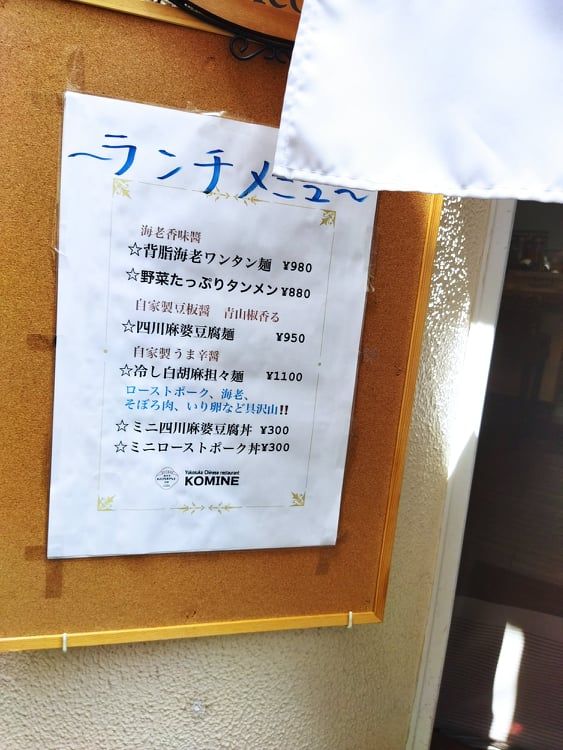 ~ランチメニュー~
海老香味醤
☆背脂海老ワンタン麺 ¥980
☆野菜たっぷりタンメン ¥880
自家製豆板醤 青山椒香る
☆四川麻婆豆腐麺 ¥950
自家製うま辛醤
☆冷し白胡麻担々麺 ¥1100
ローストポーク、海老、
そぼろ肉、いり卵など具沢山!!
☆ミニ四川麻婆豆腐丼 ¥300
☆ミニローストポーク丼¥300
Yokosuka Chinese restaurant
KOMINE